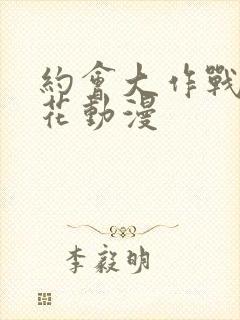 約會大作戰
花動漫
李毅明